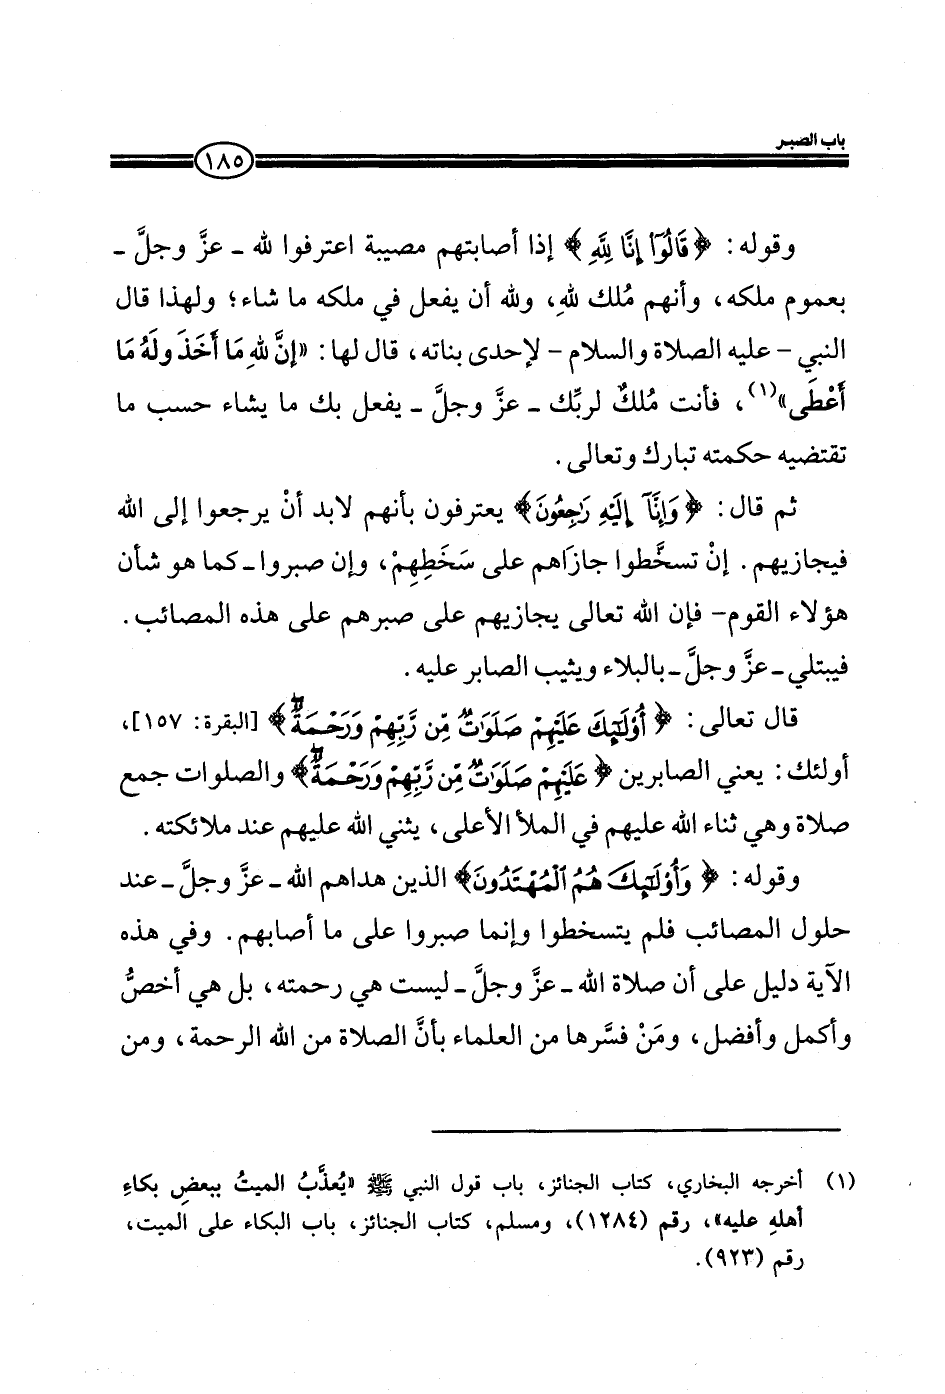 باب الصبر
١٨٥
وقوله: ﴿قَالُوٓا إِنَّا لِلَّهِ﴾ إذا أصابتهم مصيبة اعترفوا لله ـ عزَّ وجلَّ ـ
بعموم ملكه، وأنهم مُلك للهِ، ولله أن يفعل في ملكه ما شاء؛ ولهذا قال
النبي - عليه الصلاة والسلام - لإحدى بناته، قال لها: «إنَّ للهِ مَا أَخَذَ ولَهُ مَا
أَعْطَى»(١)، فأنت مُلكٌ لربِّك ـ عزَّ وجلَّ ـ يفعل بك ما يشاء حسب ما
تقتضيه حكمته تبارك وتعالى.
ثم قال: ﴿وَإِنَّآ إِلَيْهِ رَٰجِعُونَ﴾ يعترفون بأنهم لابد أنْ يرجعوا إلى الله
فيجازيهم. إنْ تسخَّطوا جازَاهم على سَخَطِهِمْ، وإن صبروا ـ كما هو شأن
هؤلاء القوم- فإن الله تعالى يجازيهم على صبرهم على هذه المصائب.
فيبتلي ـ عزَّ وجلَّ ـ بالبلاء ويثيب الصابر عليه.
قال تعالى: ﴿أُوْلَٰٓئِكَ عَلَيْهِمْ صَلَوَٰتٌ مِّن رَّبِّهِمْ وَرَحْمَةٌۖ﴾ [البقرة: ١٥٧]،
أولئك: يعني الصابرين ﴿عَلَيْهِمْ صَلَوَٰتٌ مِّن رَّبِّهِمْ وَرَحْمَةٌۖ﴾ والصلوات جمع
صلاة وهي ثناء الله عليهم في الملأ الأعلى، يثني الله عليهم عند ملائكته.
وقوله: ﴿وَأُوْلَٰٓئِكَ هُمُ ٱلْمُهْتَدُونَ﴾ الذين هداهم الله ـ عزَّ وجلَّ ـ عند
حلول المصائب فلم يتسخطوا وإنما صبروا على ما أصابهم. وفي هذه
الآية دليل على أن صلاة الله ـ عزَّ وجلَّ ـ ليست هي رحمته، بل هي أخصُّ
وأكمل وأفضل، ومَنْ فسَّرها من العلماء بأنَّ الصلاة من الله الرحمة، ومن
(١) أخرجه البخاري، كتاب الجنائز، باب قول النبي ﷺ «يُعذَّبُ الميتُ ببعضِ بكاءِ
أهلهِ عليه»، رقم (١٢٨٤)، ومسلم، كتاب الجنائز، باب البكاء على الميت،
رقم (٩٢٣).